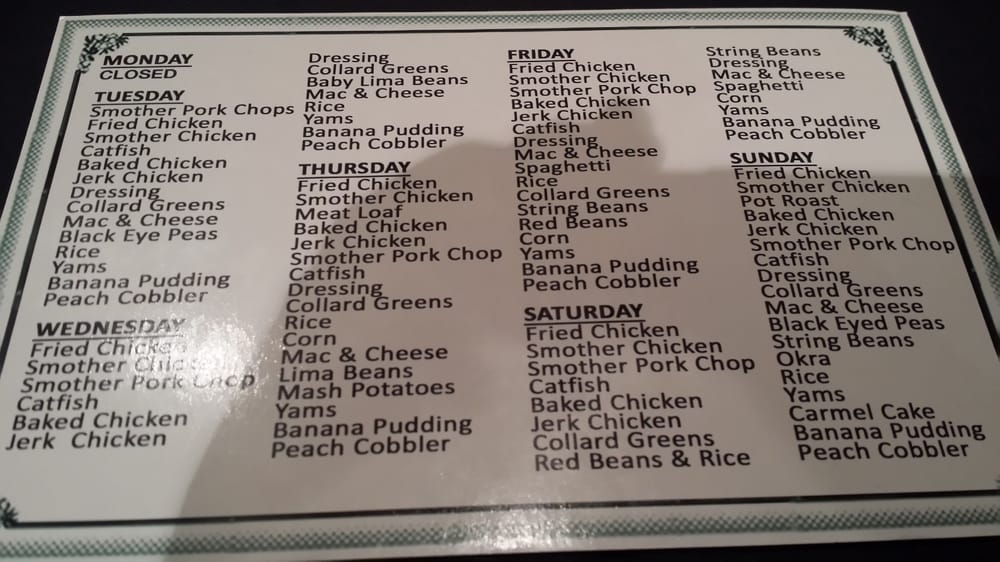 MONDAY
CLOSED
TUESDAY
Smother Pork Chops
Fried Chicken
Smother Chicken
Catfish
Baked Chicken
Jerk Chicken
Dressing
Collard Greens
Mac & Cheese
Black Eye Peas
Rice
Yams
Banana Pudding
Peach Cobbler
WEDNESDAY
Fried Chicken
Smother Chicken
Smother Pork Chop
Catfish
Baked Chicken
Jerk Chicken
Dressing
Collard Greens
Baby Lima Beans
Mac & Cheese
Rice
Yams
Banana Pudding
Peach Cobbler
THURSDAY
Fried Chicken
Smother Chicken
Meat Loaf
Baked Chicken
Jerk Chicken
Smother Pork Chop
Catfish
Dressing
Collard Greens
Rice
Corn
Mac & Cheese
Lima Beans
Mash Potatoes
Yams
Banana Pudding
Peach Cobbler
FRIDAY
Fried Chicken
Smother Chicken
Smother Pork Chop
Baked Chicken
Jerk Chicken
Catfish
Dressing
Mac & Cheese
Spaghetti
Rice
Collard Greens
String Beans
Red Beans
Corn
Yams
Banana Pudding
Peach Cobbler
SATURDAY
Fried Chicken
Smother Chicken
Smother Pork Chop
Catfish
Baked Chicken
Jerk Chicken
Collard Greens
Red Beans & Rice
String Beans
Dressing
Mac & Cheese
Spaghetti
Corn
Yams
Banana Pudding
Peach Cobbler
SUNDAY
Fried Chicken
Smother Chicken
Pot Roast
Baked Chicken
Jerk Chicken
Smother Pork Chop
Catfish
Dressing
Collard Greens
Mac & Cheese
Black Eyed Peas
String Beans
Okra
Rice
Yams
Carmel Cake
Banana Pudding
Peach Cobbler